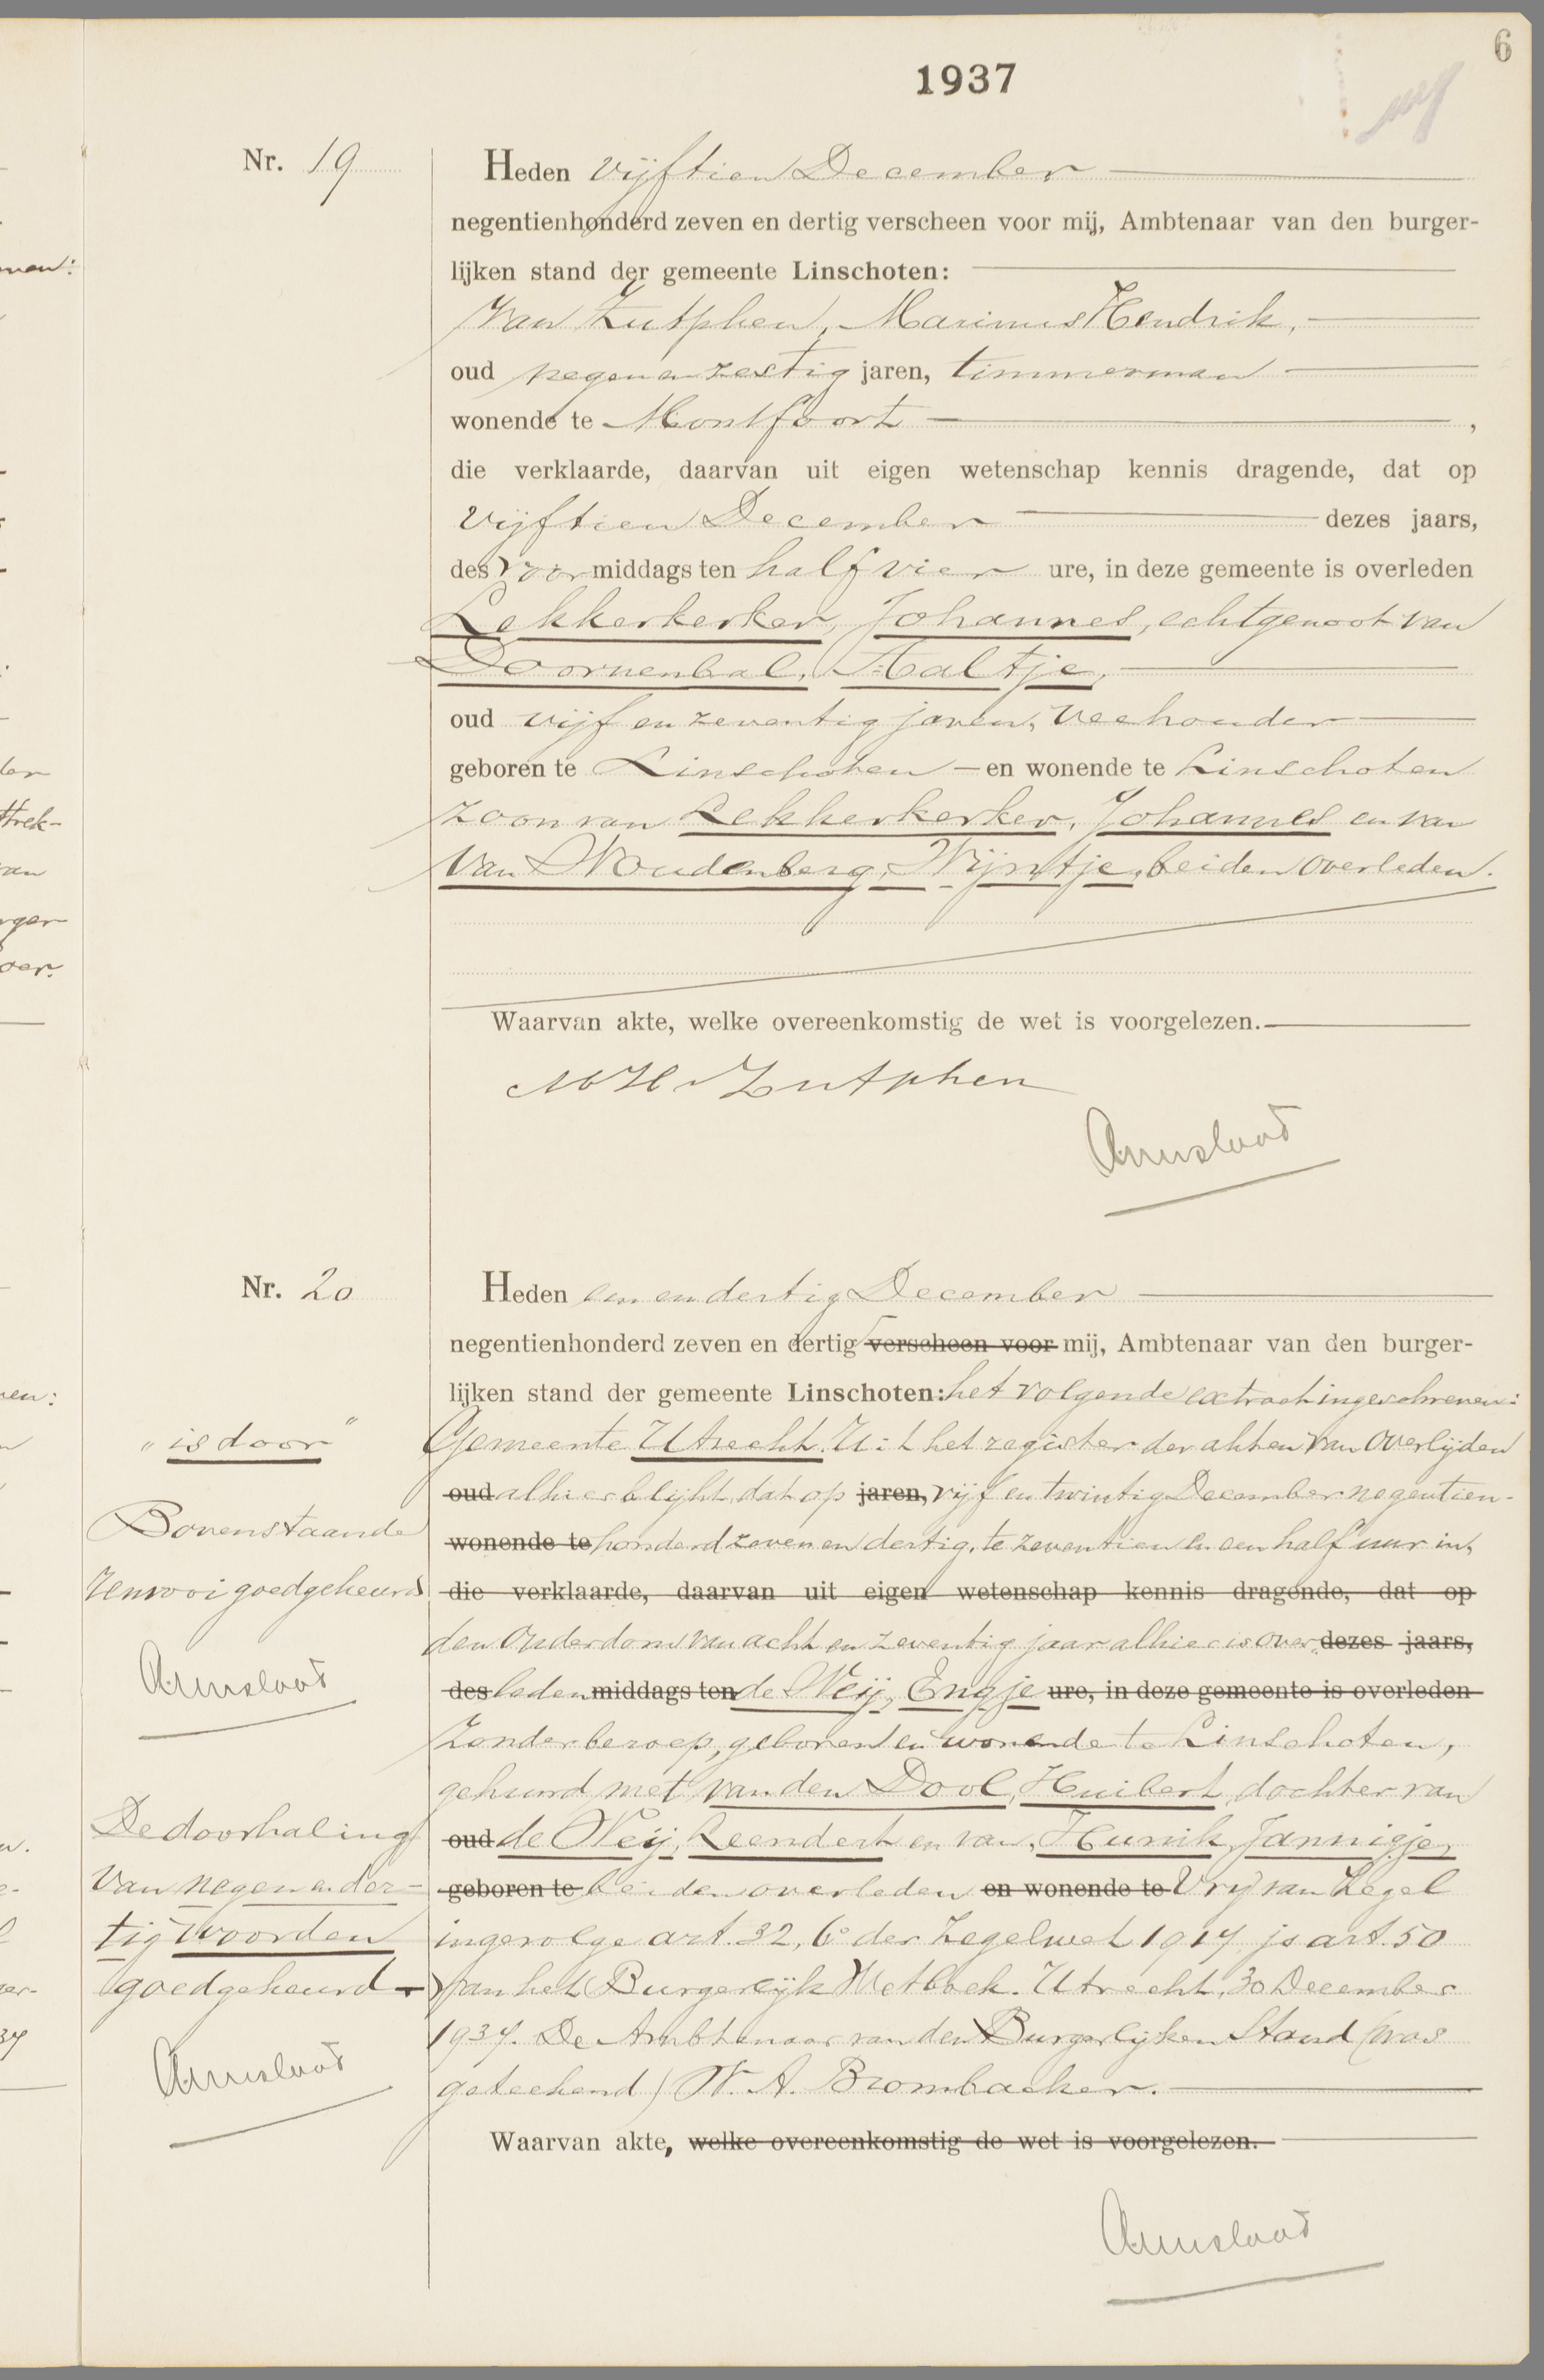 6
1937
Nr. 19
Heden vijftien December
negentienhonderd zeven en dertig verscheen voor mij, Ambtenaar van den burger-
lijken stand der gemeente Linschoten:
Van Zutphen, Marinus Hendrik,
oud negen en zestig jaren, timmerman
wonende te Montfoort,
die verklaarde, daarvan uit eigen wetenschap kennis dragende, dat op
vijftien December dezes jaars,
des voormiddags ten half vier ure, in deze gemeente is overleden
Lekkerkerker, Johannes, echtgenoot van
Doornenbal, Aaltje,
oud vijf en zeventig jaren, veehouder
geboren te Linschoten en wonende te Linschoten
zoon van Lekkerkerker, Johannes en van
Van Woudenberg, Wijntje, beiden overleden.
Waarvan akte, welke overeenkomstig de wet is voorgelezen.
MH v Zutphen
Nr. 20
Heden een en dertig December
negentienhonderd zeven en dertig verscheen voor mij, Ambtenaar van den burger-
lijken stand der gemeente Linschoten: het volgende extract ingeschreven:
"is door"
Gemeente Utrecht. Uit het register der akten van overlijden
oud alhier blijkt, dat op jaren, vijf en twintig December negentien-
Bovenstaande
wonende te honderd zeven en dertig, te zeventien en een half uur in,
renvooi goedgekeurd
die verklaarde, daarvan uit eigen wetenschap kennis dragende, dat op
den ouderdom van acht en zeventig jaar alhier is over dezes jaars,
des leden middags ten de Weij, Engje ure, in deze gemeente is overleden
zonder beroep, geboren en wonende te Linschoten,
gehuwd met van den Dool, Huibert, dochter van
De doorhaling
oud de Weij, Leendert en van, Hunik, Jannigje,
van negen en der-
geboren te beiden overleden en wonende te Vrij van Zegel
tig woorden
ingevolge art. 32, 6° der Zegelwet 1917 jo art. 50
goedgekeurd
van het Burgerlijk Wetboek. Utrecht, 30 December
1937. De Ambtenaar van den Burgerlijken Stand (was
geteekend) W. A. Brombacher.
Waarvan akte, welke overeenkomstig de wet is voorgelezen.